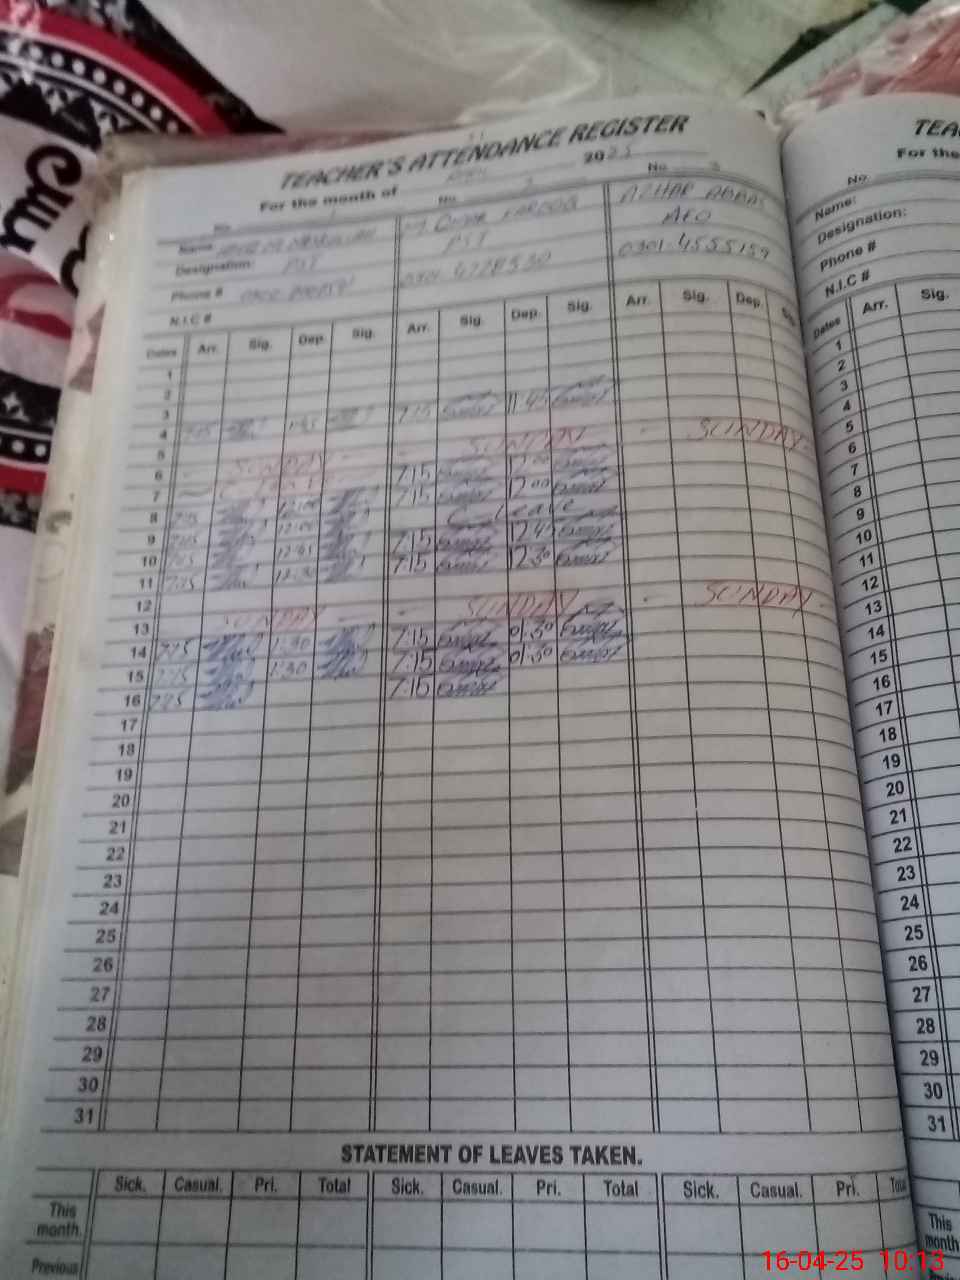 TEACHER'S ATTENDANCE REGISTER
For the month of 2025
No. No. No. 3
Name: M. OMAR FAROOQ AZHAR ABBAS
Designation: PST PST AEO
Phone # 0301-4555159
N.I.C #
Dates Arr. Sig. Dep. Sig. Arr. Sig. Dep. Sig. Arr. Sig. Dep. Sig.
1
2
3
4 7:15 11:45
5
6 SUNDAY SUNDAY SUNDAY
7 7:15 12:00
8 12:00 7:15 12:00
9 12:00 C. Leave
10 12:45 7:15 12:45
11 12:30 7:15 12:30
12
13 SUNDAY SUNDAY SUNDAY
14 1:30 7:15 01:30
15 1:30 7:15 01:30
16 7:15
17
18
19
20
21
22
23
24
25
26
27
28
29
30
31
STATEMENT OF LEAVES TAKEN.
Sick. Casual. Pri. Total Sick. Casual. Pri. Total Sick. Casual. Pri. Total
This month.
Previous
TEA
For the
No.
Name:
Designation:
Phone #
N.I.C #
Dates Arr. Sig.
1
2
3
4
5
6
7
8
9
10
11
12
13
14
15
16
17
18
19
20
21
22
23
24
25
26
27
28
29
30
31
This month
16-04-25 10:13